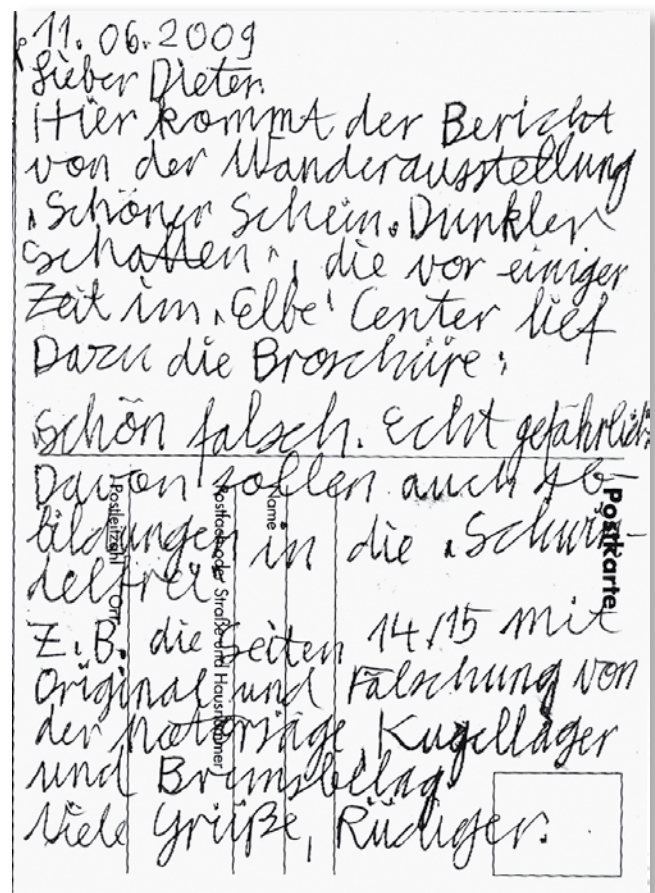 11.06.2009
Lieber Dieter.
Hier kommt der Bericht
von der Wanderausstellung
„Schöner Schein. Dunkler
Schatten“, die vor einiger
Zeit im „Elbe“ Center lief
Dazu die Broschüre:
„schön falsch. Echt gefährlich“
Davon sollen auch Ab-
bildungen in die „Schwin-
delfrei“
Z.B. die Seiten 14/15 mit
Original und Fälschung von
der Motorsäge, Kugellager
und Bremsbelag.
Viele Grüße, Rüdiger.
Postkarte
Name
Postfach oder Straße und Hausnummer
Postleitzahl Ort